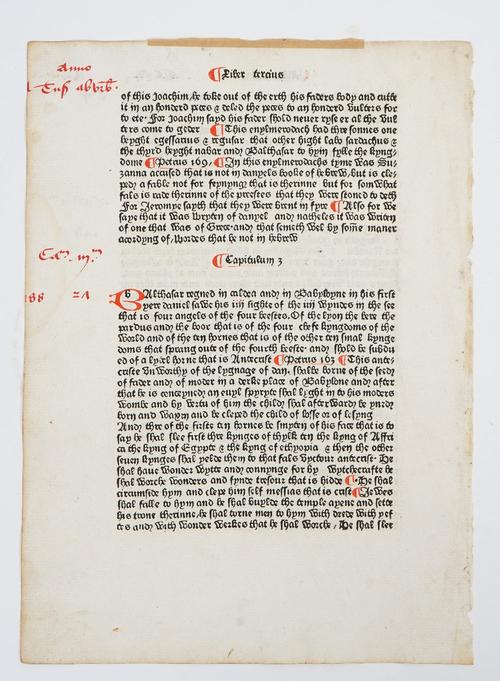 Anno
¶ Liber tercius
of this Joachim, he toke out of the erth his faders body and cutte
it in an honderd peces & deled the peces to an honderd vulters for
to ete· For Joachim sayd his fader shold neuer ryse er al the vul
ters come to geder ¶ This enylmerodach had thre sonnes one
hyght egessarius & regusar that other hight labo sardachus &
the thyrd hyght nabar and Balthasar to hym fylle the kyng-
dome ¶ Petrus 169, ¶ In this enylmerodachs tyme was Su-
zanna accused that is not in danyels booke of hebrew, but is cle-
ped a fable not for feynynge that is therinne but for somwhat
fals is rade therinne of the preestes that they were stoned to deth
For Jeronyme sayth that they were brent in fyre ¶ Also for we
saye that it was wryten of danyel and natheles it was writen
of one that was of Grece· and that semeth wel by some maner
acordyng of wordes that be not in hebrew
¶ Capitulum 3
BAlthasar regned in caldea and in Babylone in his first
yere daniel sawe his iiii sightes of the iiii wyndes in the see
that is four angels of the four beestes. Of the lyon the bere the
pardus and the boor that is of the four chefe kyngdoms of the
world and of the ten hornes that is of the other ten smal kynge
doms that sprang oute of the fourth beeste· and shold be subdu
ed of a lytel horne that is Antecrist ¶ Petrus 103 ¶ This ante-
criste vnworthy of the lygnage of dan, shalbe borne of the seed
of fader and of moder in a derke place of Babylone and after
that he is conceyued an euyl spyryte shal light in to his moders
wombe and by vertu of him the child shal afterward be
born and and be cleped the child of losse or of lesyng
And thre of the first ten hornes be smyten of his face that is to
say he shal slee first thre kynges of thylk ten the kyng of Affri
ca the kyng of Egypte & the kyng of ethyopia & then the other
seuen kynges shal yelde them to that fals vyctour antecrist· He
shal haue wonder wytte and connynge for by wytchecrafte he
shal worche wonders and fynde tresour that is hidde ¶ He shal
circumside hym and clepe him self messias that is crist ¶ Jewes
shal falle to hym and he shal buylde the temple ayene and sette
his trone therinne, he shal torne men to hym with drede with yef
tes and with wonder werkes that he shal worche, He shal slee